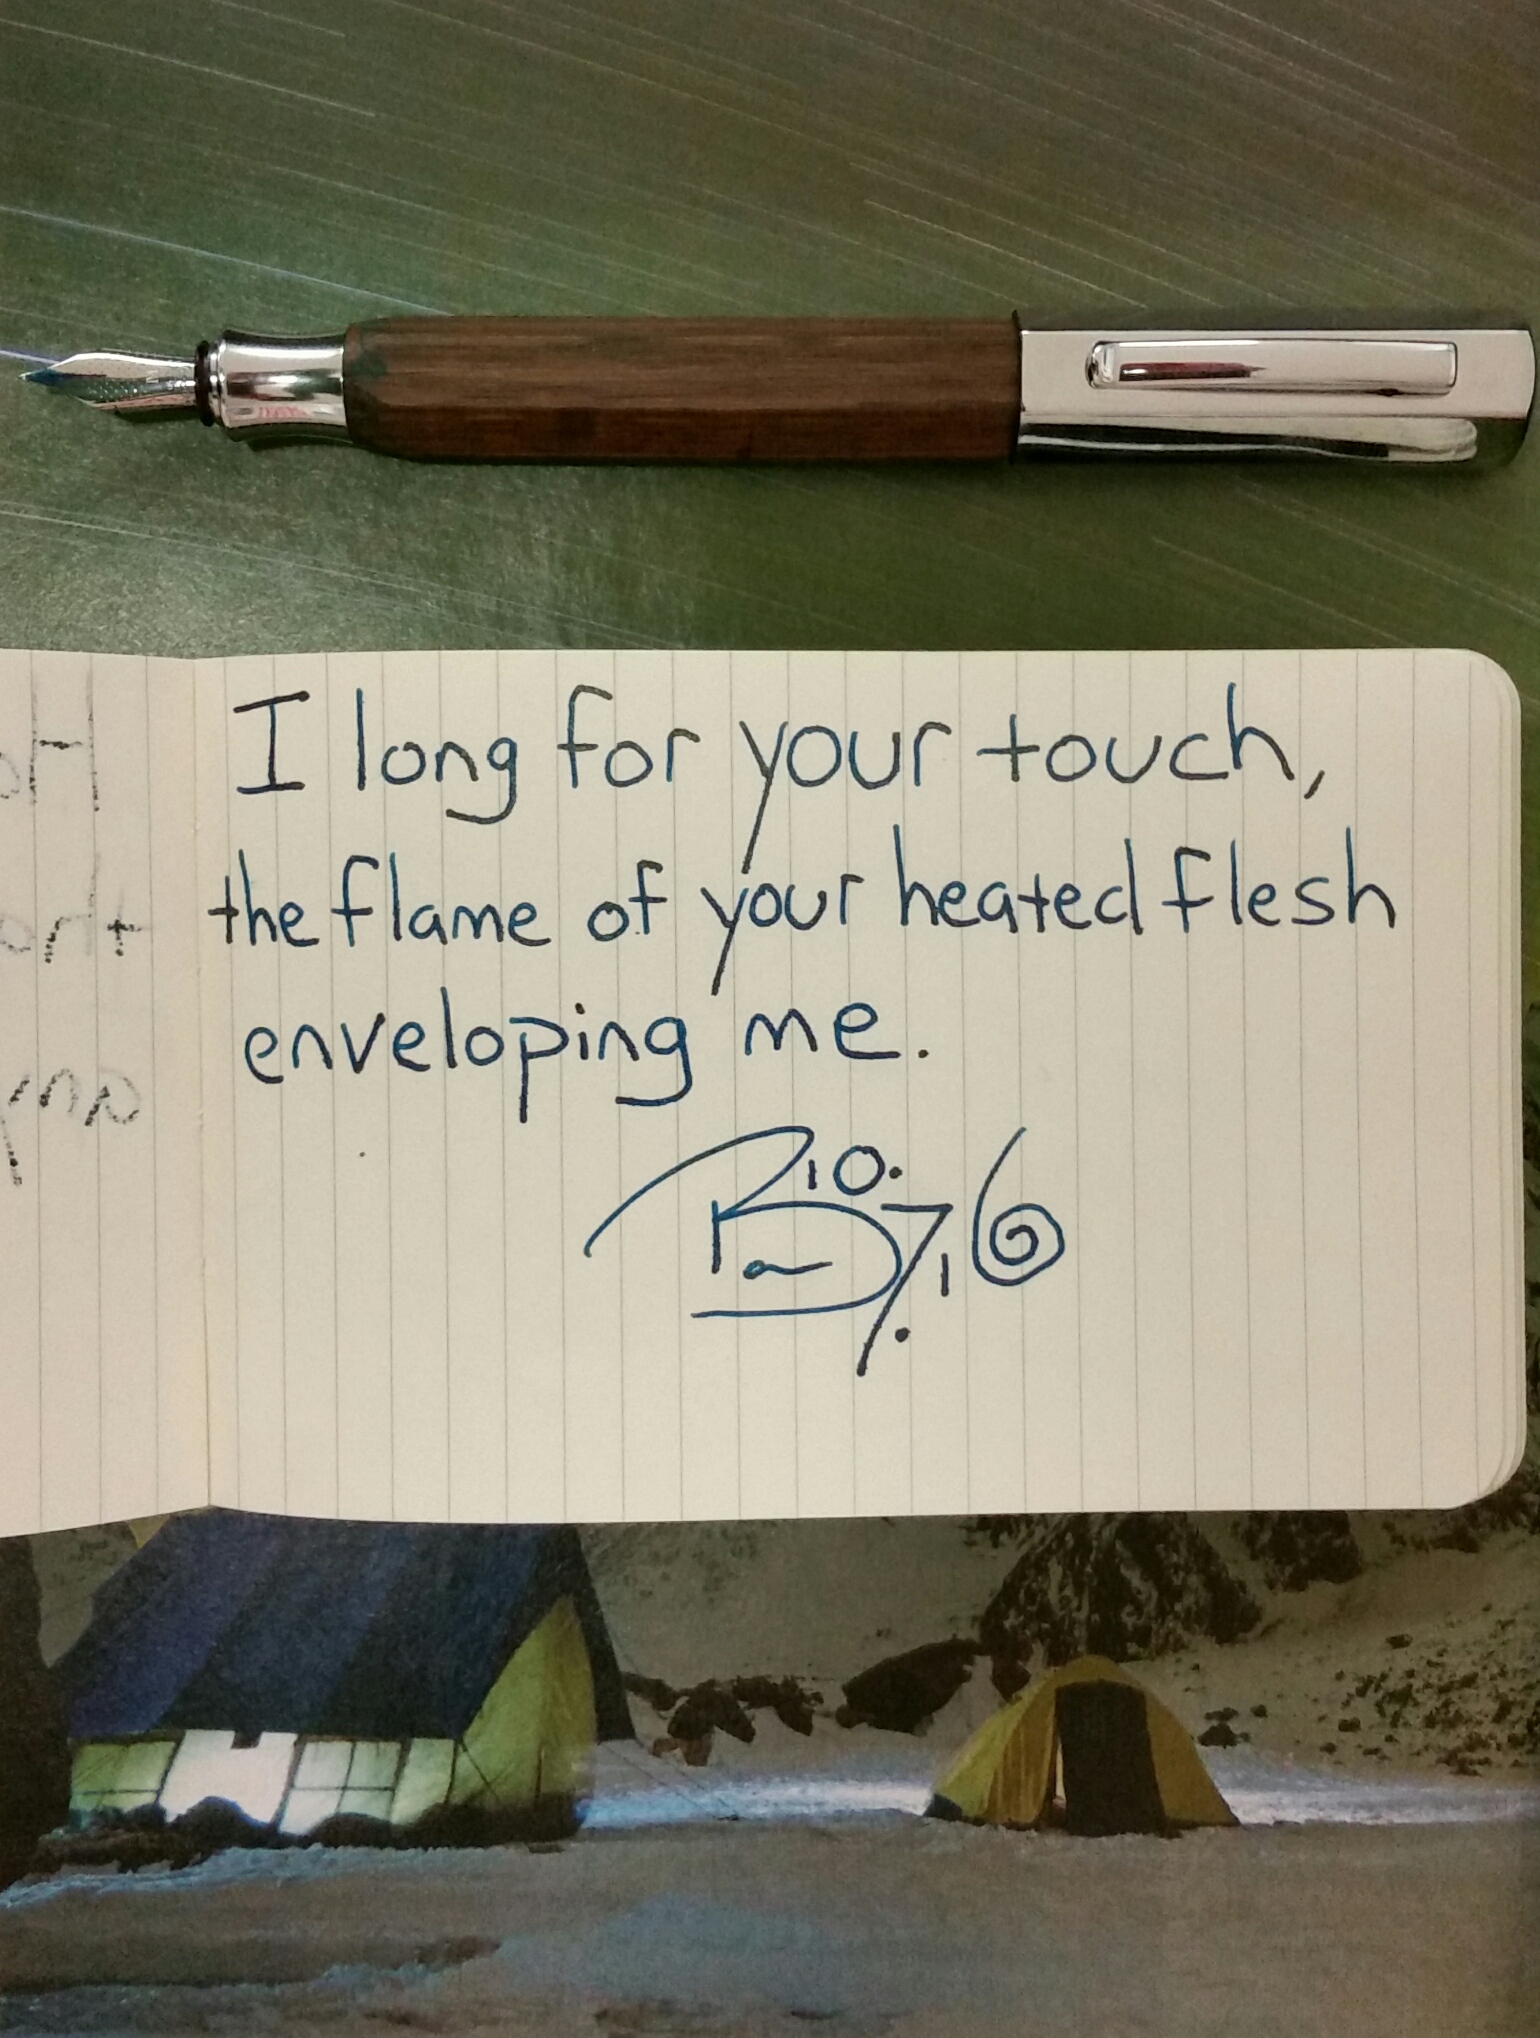 I long for your touch,
the flame of your heated flesh
enveloping me.
10.
7.
16